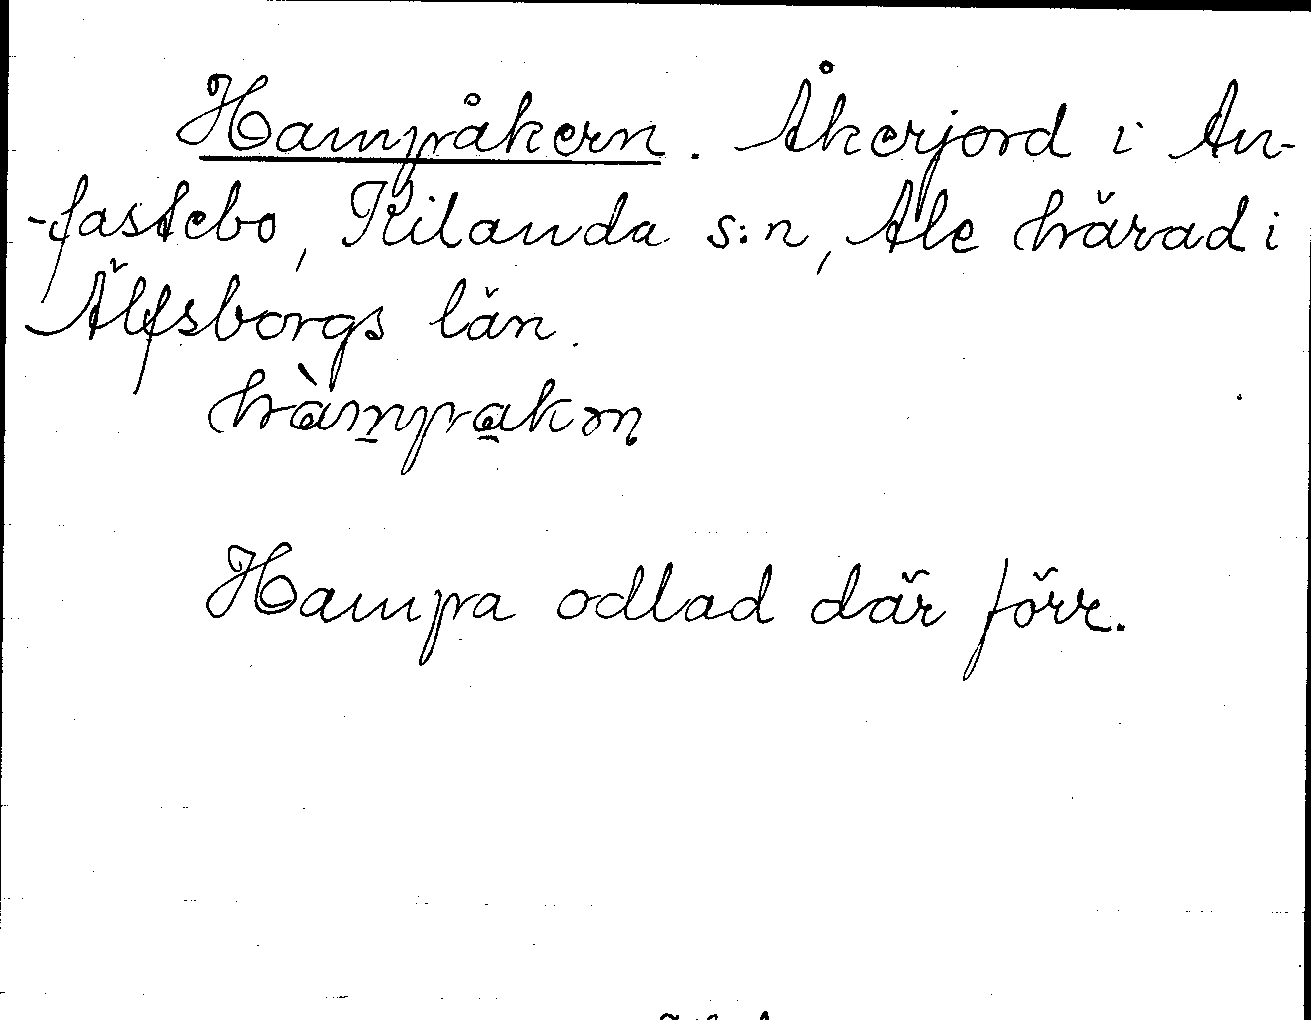 Hampåkern. Åkerjord i An-
-fastebo, Kilanda s:n, Ale härad i
Älfsborgs län.
hàmpakən
Hampa odlad där förr.